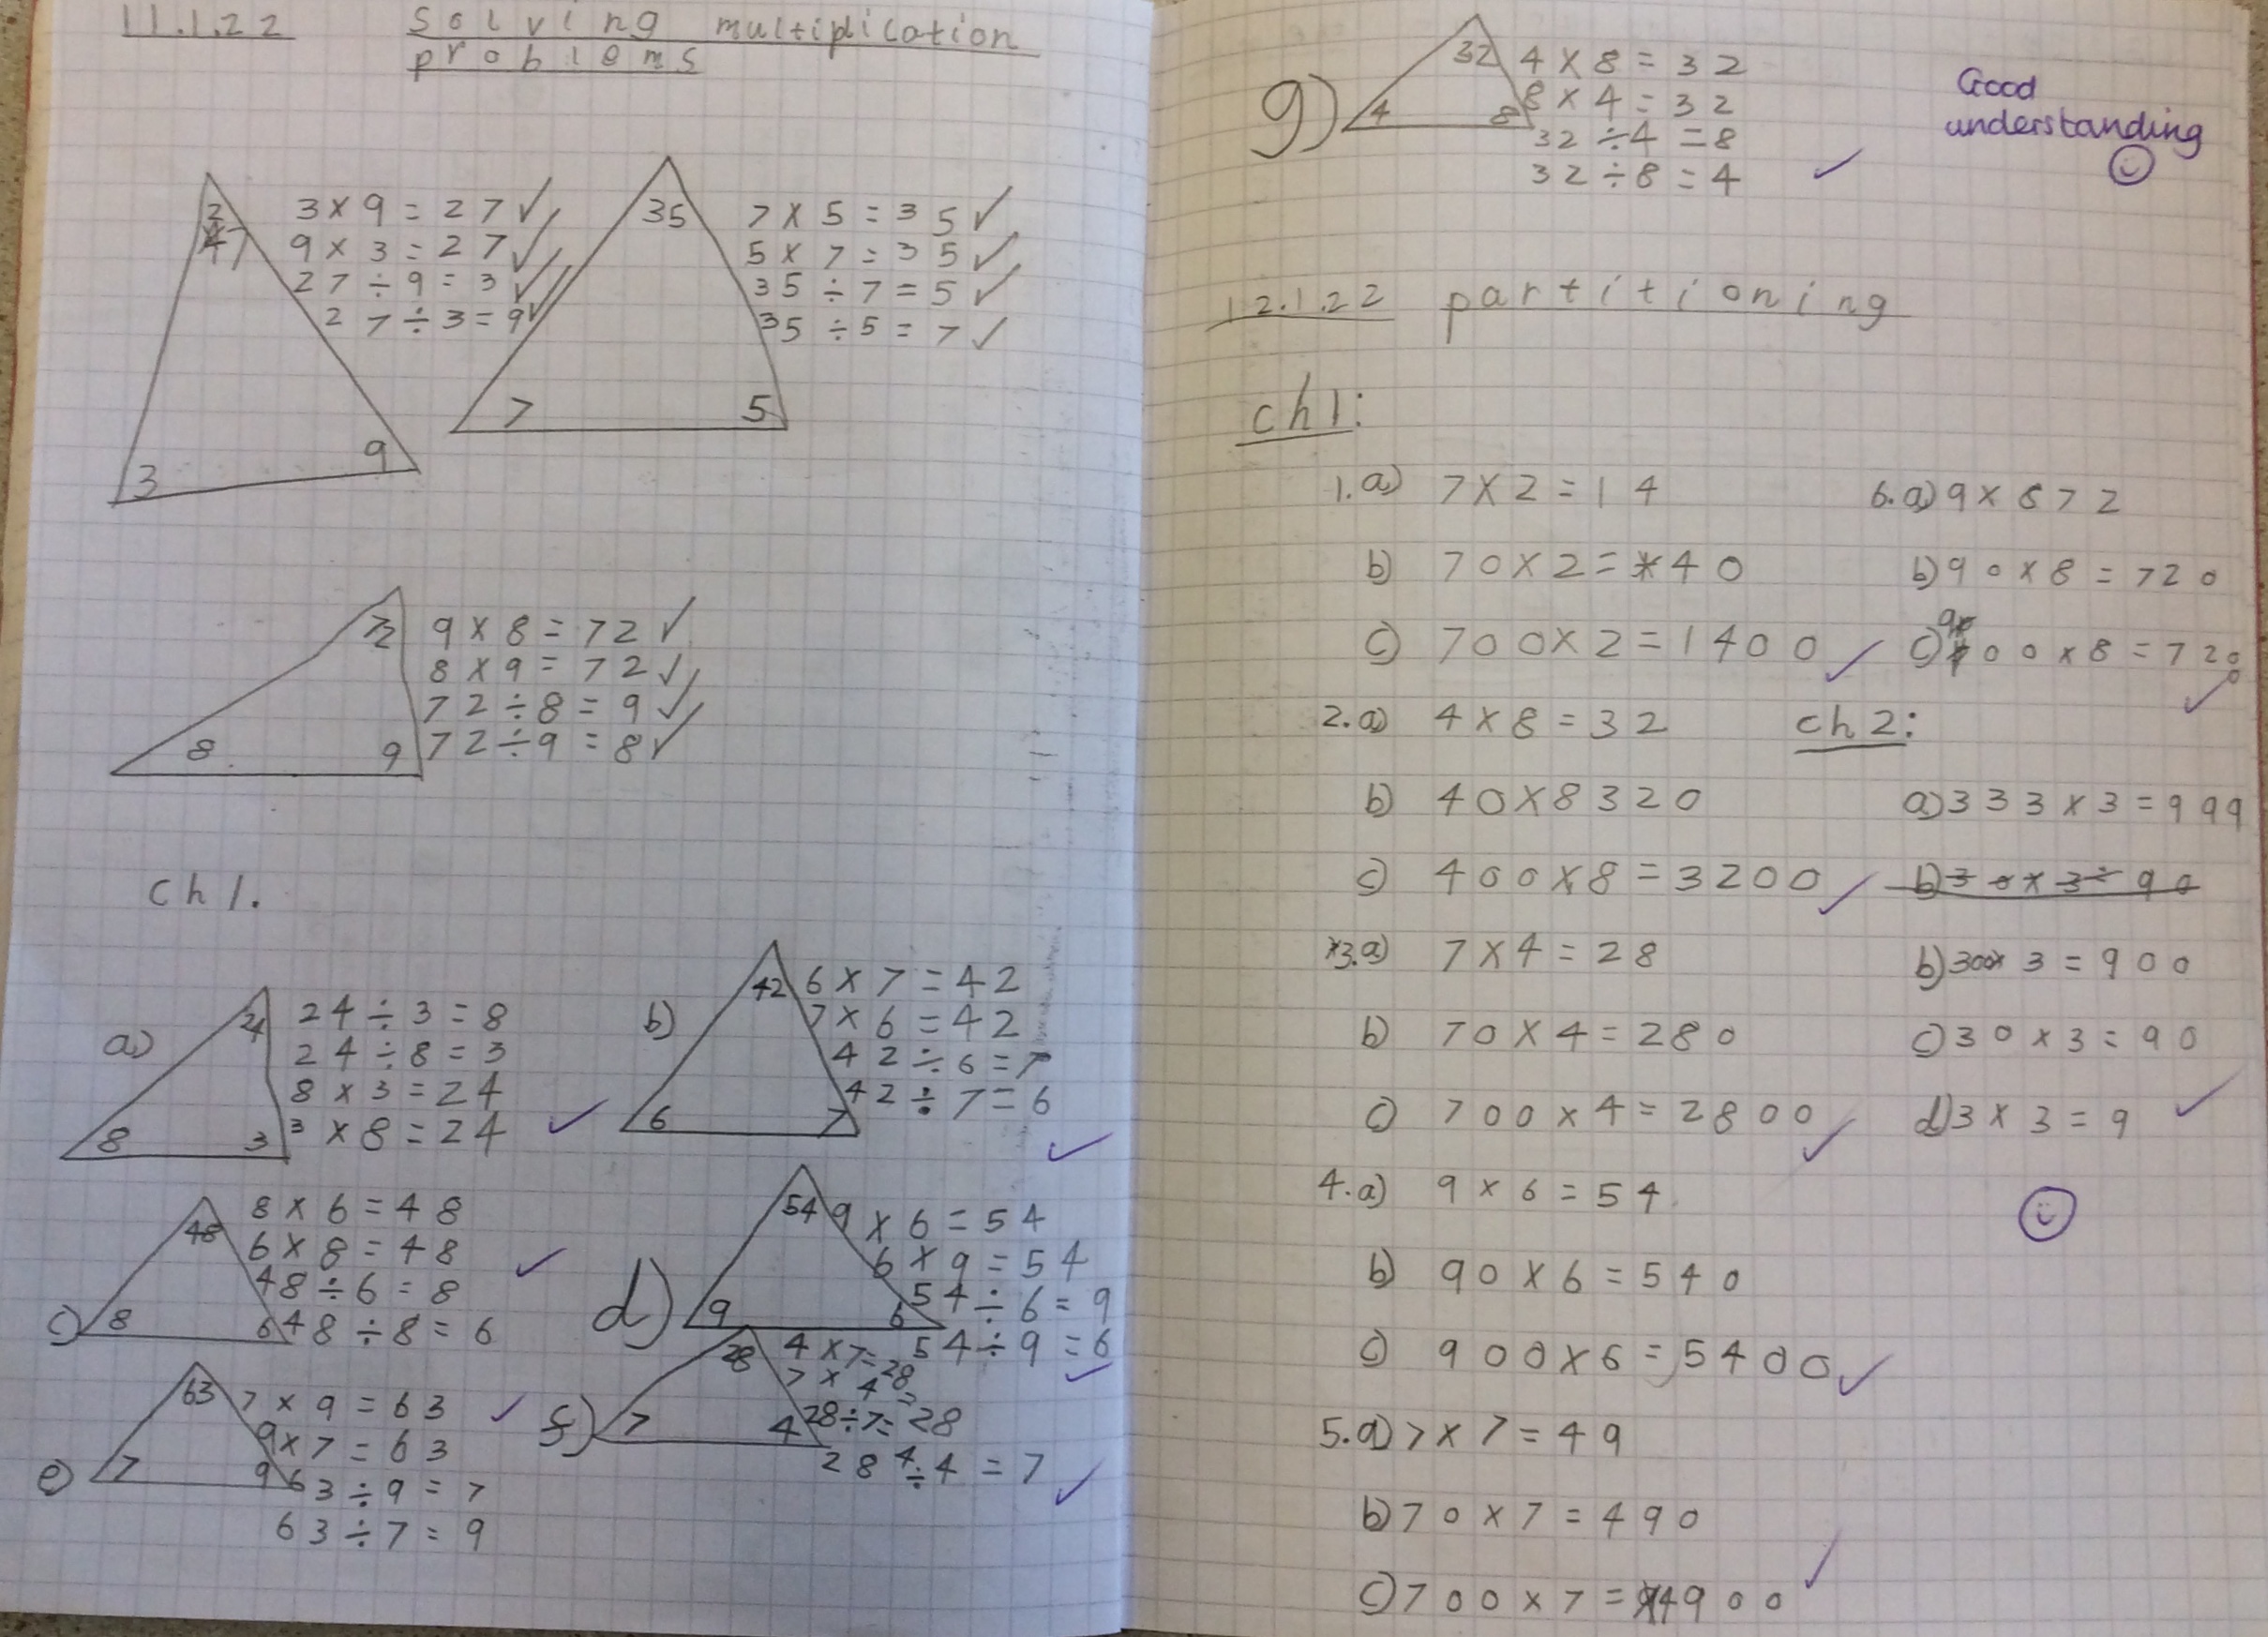 11.1.22 Solving multiplication
problems
27
3
9
3 x 9 = 27 ✓
9 x 3 = 27 ✓
27 ÷ 9 = 3 ✓
27 ÷ 3 = 9 ✓
35
7
5
7 x 5 = 35 ✓
5 x 7 = 35 ✓
35 ÷ 7 = 5 ✓
35 ÷ 5 = 7 ✓
72
8
9
9 x 8 = 72 ✓
8 x 9 = 72 ✓
72 ÷ 8 = 9 ✓
72 ÷ 9 = 8 ✓
Ch 1.
a)
24
8
3
24 ÷ 3 = 8
24 ÷ 8 = 3
8 x 3 = 24
3 x 8 = 24 ✓
b)
42
6
7
6 x 7 = 42
7 x 6 = 42
42 ÷ 6 = 7
42 ÷ 7 = 6 ✓
c)
48
8
6
8 x 6 = 48
6 x 8 = 48 ✓
48 ÷ 6 = 8
48 ÷ 8 = 6
d)
54
9
6
9 x 6 = 54
6 x 9 = 54
54 ÷ 6 = 9
54 ÷ 9 = 6 ✓
e)
63
7
9
7 x 9 = 63 ✓
9 x 7 = 63
63 ÷ 9 = 7
63 ÷ 7 = 9
f)
28
7
4
4 x 7 = 28
7 x 4 = 28
28 ÷ 7 = 4
28 ÷ 4 = 7 ✓
g)
32
4
8
4 x 8 = 32
8 x 4 = 32
32 ÷ 4 = 8
32 ÷ 8 = 4 ✓
Good
understanding
12.1.22 partitioning
ch 1:
1. a) 7 x 2 = 14
b) 70 x 2 = 140
c) 700 x 2 = 1400 ✓
2. a) 4 x 8 = 32
b) 40 x 8 320
c) 400 x 8 = 3200 ✓
3. a) 7 x 4 = 28
b) 70 x 4 = 280
c) 700 x 4 = 2800 ✓
4. a) 9 x 6 = 54
b) 90 x 6 = 540
c) 900 x 6 = 5400 ✓
5. a) 7 x 7 = 49
b) 70 x 7 = 490
c) 700 x 7 = 4900 ✓
6. a) 9 x 8 72
b) 90 x 8 = 720
c) 900 x 8 = 7200 ✓
ch 2:
a) 333 x 3 = 999
b) 30 x 3 = 90
b) 300 x 3 = 900
c) 30 x 3 = 90
d) 3 x 3 = 9 ✓